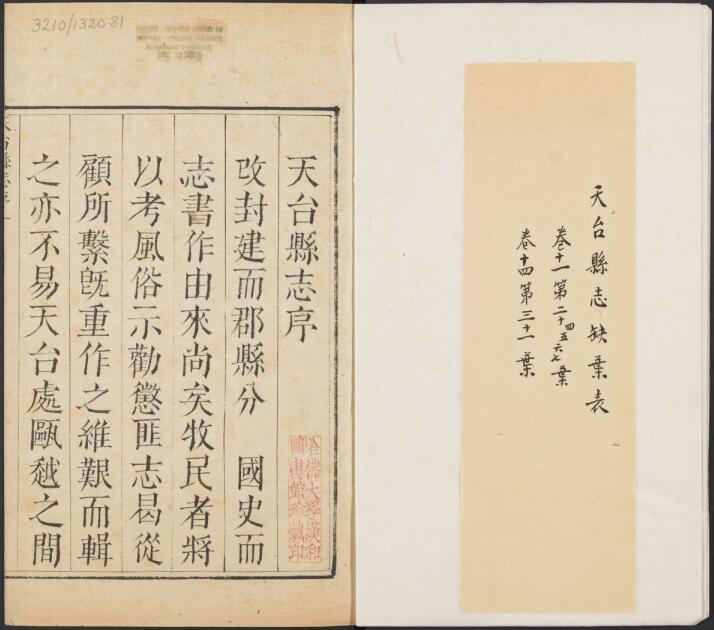 天台縣志缺葉表
卷十一第二十四五六七葉
卷十四第三十一葉
3210/1320·81
天台縣志序
改封建而郡縣分　國史而
志書作由來尚矣牧民者將
以考風俗示勸懲匪志曷從
顧所繫旣重作之維艱而輯
之亦不易天台處甌越之間
哈佛大學漢和
圖書館珍藏印
天台縣志序